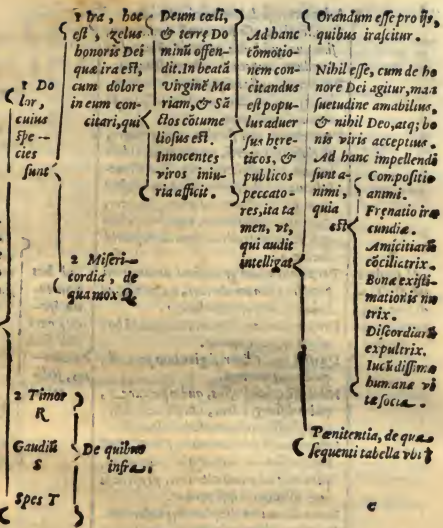 1 Do
lor,
cuius
spe --
cies
sunt
1 Ira, hoc
est, zelus
honoris Dei
quæ ira est,
cum dolore
in eum con
citari, qui
2 Miseri-
cordia, de
qua mox Q.
Deum cæli,
& terrę Do
minũ offen-
dit. In beatã
Virginẽ Ma
riam, & Sã
ctos cõtume
liosus est.
Innocentes
viros iniu-
ria afficit.
Ad hanc
cõmotio-
nem con-
citandus
est popu-
lus aduer
sus hære-
ticos, &
publicos
peccato-
res, ita ta
men, vt,
qui audit
intelligat
Orandum esse pro ijs,
quibus irascitur.
Nihil esse, cum de ho
nore Dei agitur, man
suetudine amabilius,
& nihil Deo, atq; bo
nis viris acceptius.
Ad hanc impellendi
sunt a-
nimi,
quia
est
Compositio
animi.
Frenatio ira
cundiæ.
Amicitiarũ
cõciliatrix.
Bonæ existi-
mationis nu
trix.
Discordiarũ
expultrix.
Iucũdissima
humanæ vi
tæ socia.
Pænitentia, de qua
sequenti tabella vbi
2 Timor
R
Gaudiũ
S
Spes T
De quibus
infra.
c